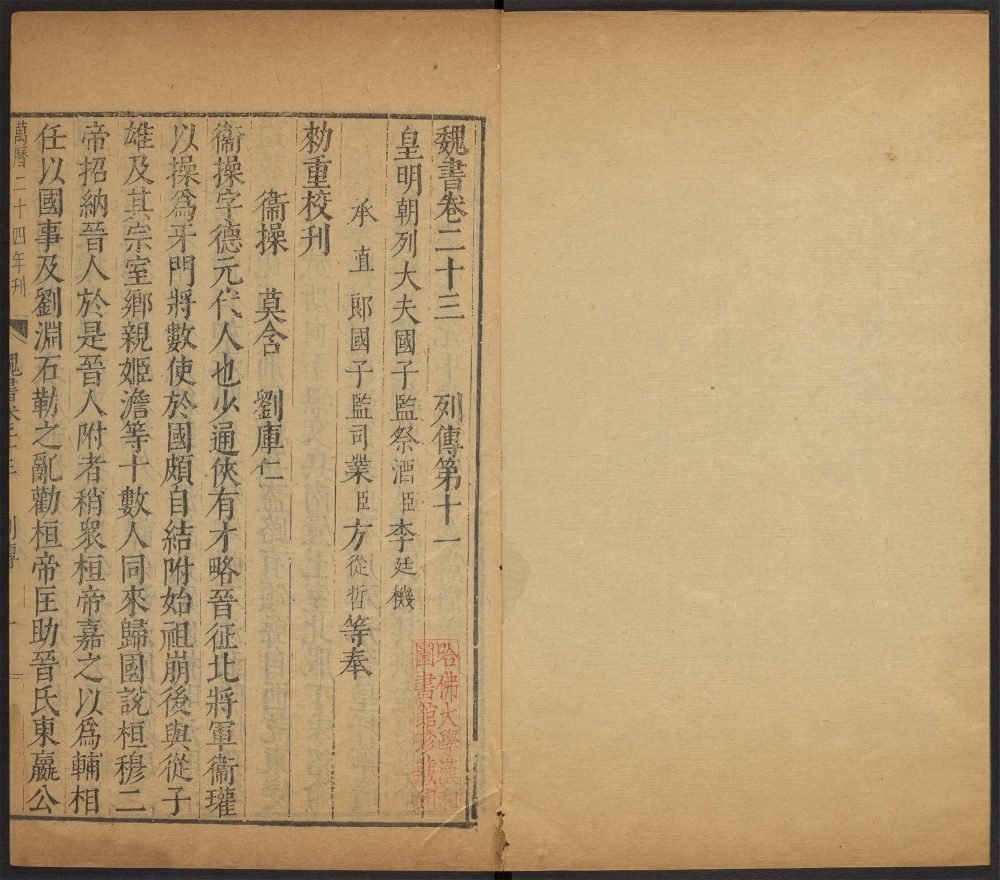 魏書卷二十三　列傳第十一
皇明朝列大夫國子監祭酒臣李廷機
承直郎國子監司業臣方從哲等奉
勑重校刊
衞操　莫含　劉庫仁
衞操字德元代人也少通俠有才略晉征北將軍衞瓘
以操爲牙門將數使於國頗自結附始祖崩後與從子
雄及其宗室鄉親姬澹等十數人同來歸國說桓穆二
帝招納晉人於是晉人附者稍衆桓帝嘉之以爲輔相
任以國事及劉淵石勒之亂勸桓帝匡助晉氏東嬴公
萬曆二十四年刊
魏書卷二十三　列傳　一
哈佛大學漢和
圖書館珍藏印